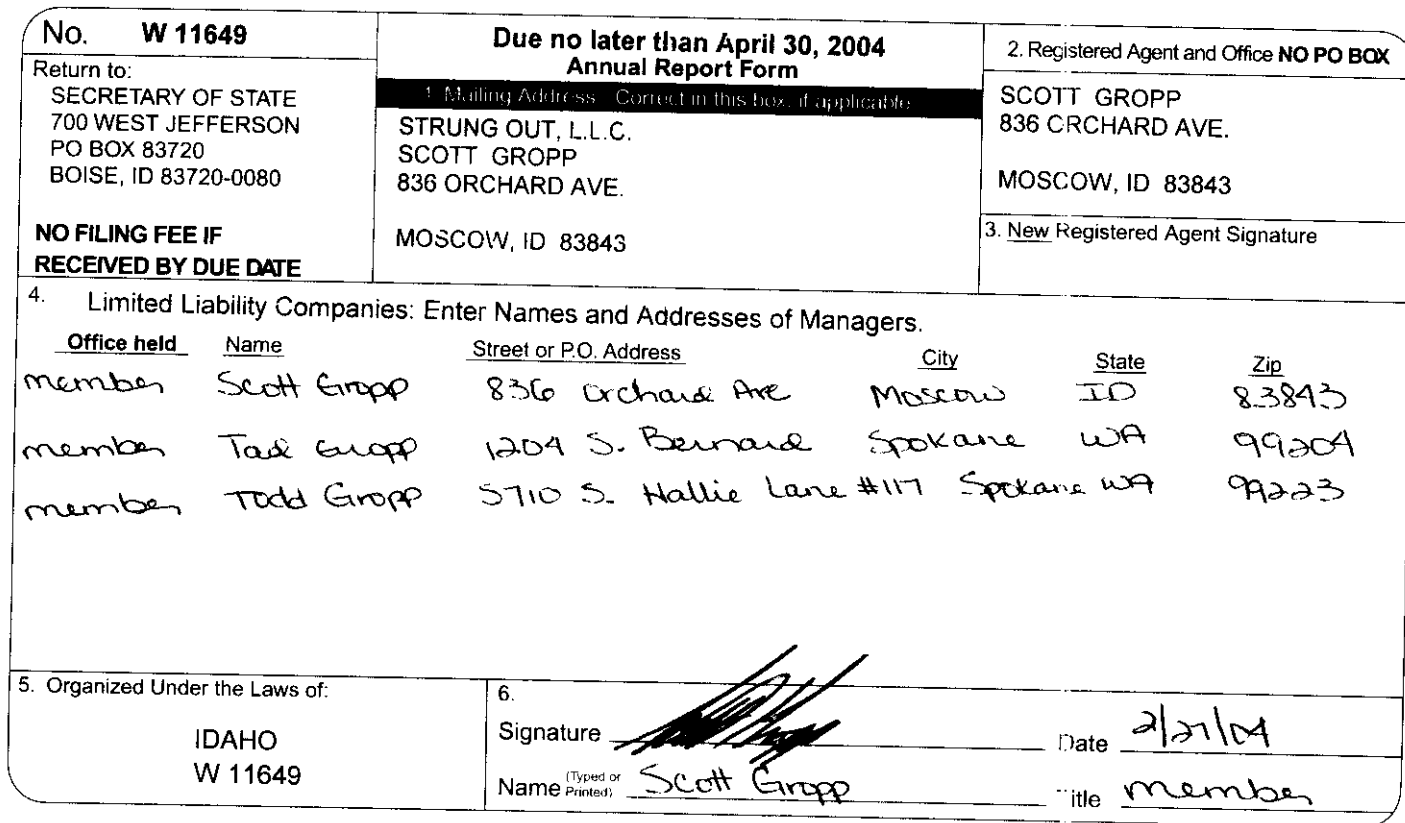 No. W 11649
Return to:
SECRETARY OF STATE
700 WEST JEFFERSON
PO BOX 83720
BOISE, ID 83720-0080
NO FILING FEE IF
RECEIVED BY DUE DATE
Due no later than April 30, 2004
Annual Report Form
1. Mailing Address: Correct in this box, if applicable
STRUNG OUT, L.L.C.
SCOTT GROPP
836 ORCHARD AVE.
MOSCOW, ID 83843
2. Registered Agent and Office NO PO BOX
SCOTT GROPP
836 ORCHARD AVE.
MOSCOW, ID 83843
3. New Registered Agent Signature
4. Limited Liability Companies: Enter Names and Addresses of Managers.
Office held Name Street or P.O. Address City State Zip
member Scott Gropp 836 Orchard Ave Moscow ID 83843
member Tad Gropp 1204 S. Bernard Spokane WA 99204
member Todd Gropp 5710 S. Hallie Lane #117 Spokane WA 99223
5. Organized Under the Laws of:
IDAHO
W 11649
6.
Signature Date 2/27/04
Name (Typed or Printed) Scott Gropp Title member